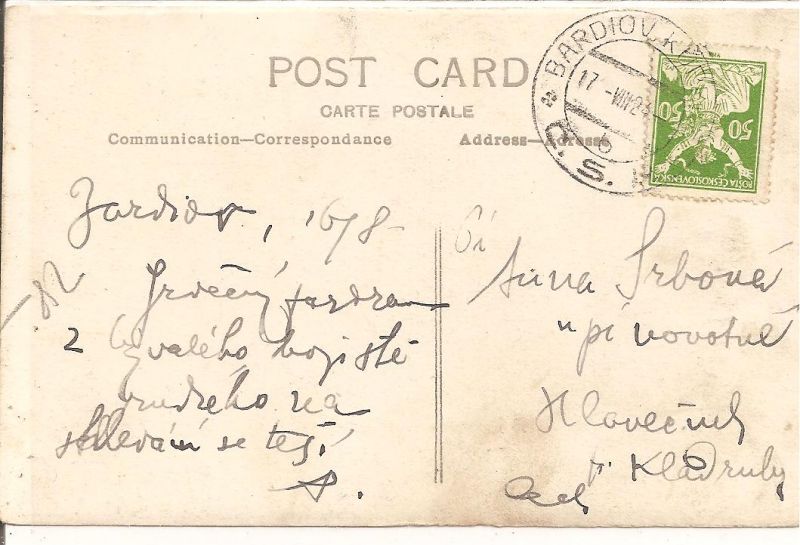 POST CARD
CARTE POSTALE
Communication—Correspondance
Address—Adresse
BARDIOV K
17 -VIII 2
6
Č. S.
50 50
POŠTA ČESKOSLOVENSKÁ
Bardiov, 16/8
Srdečný pozdrav
z bývalého bojiště
na
shledání se těší
A.
Anna Srbová
u pí Novotné
Hlavečník
p. Kladruby